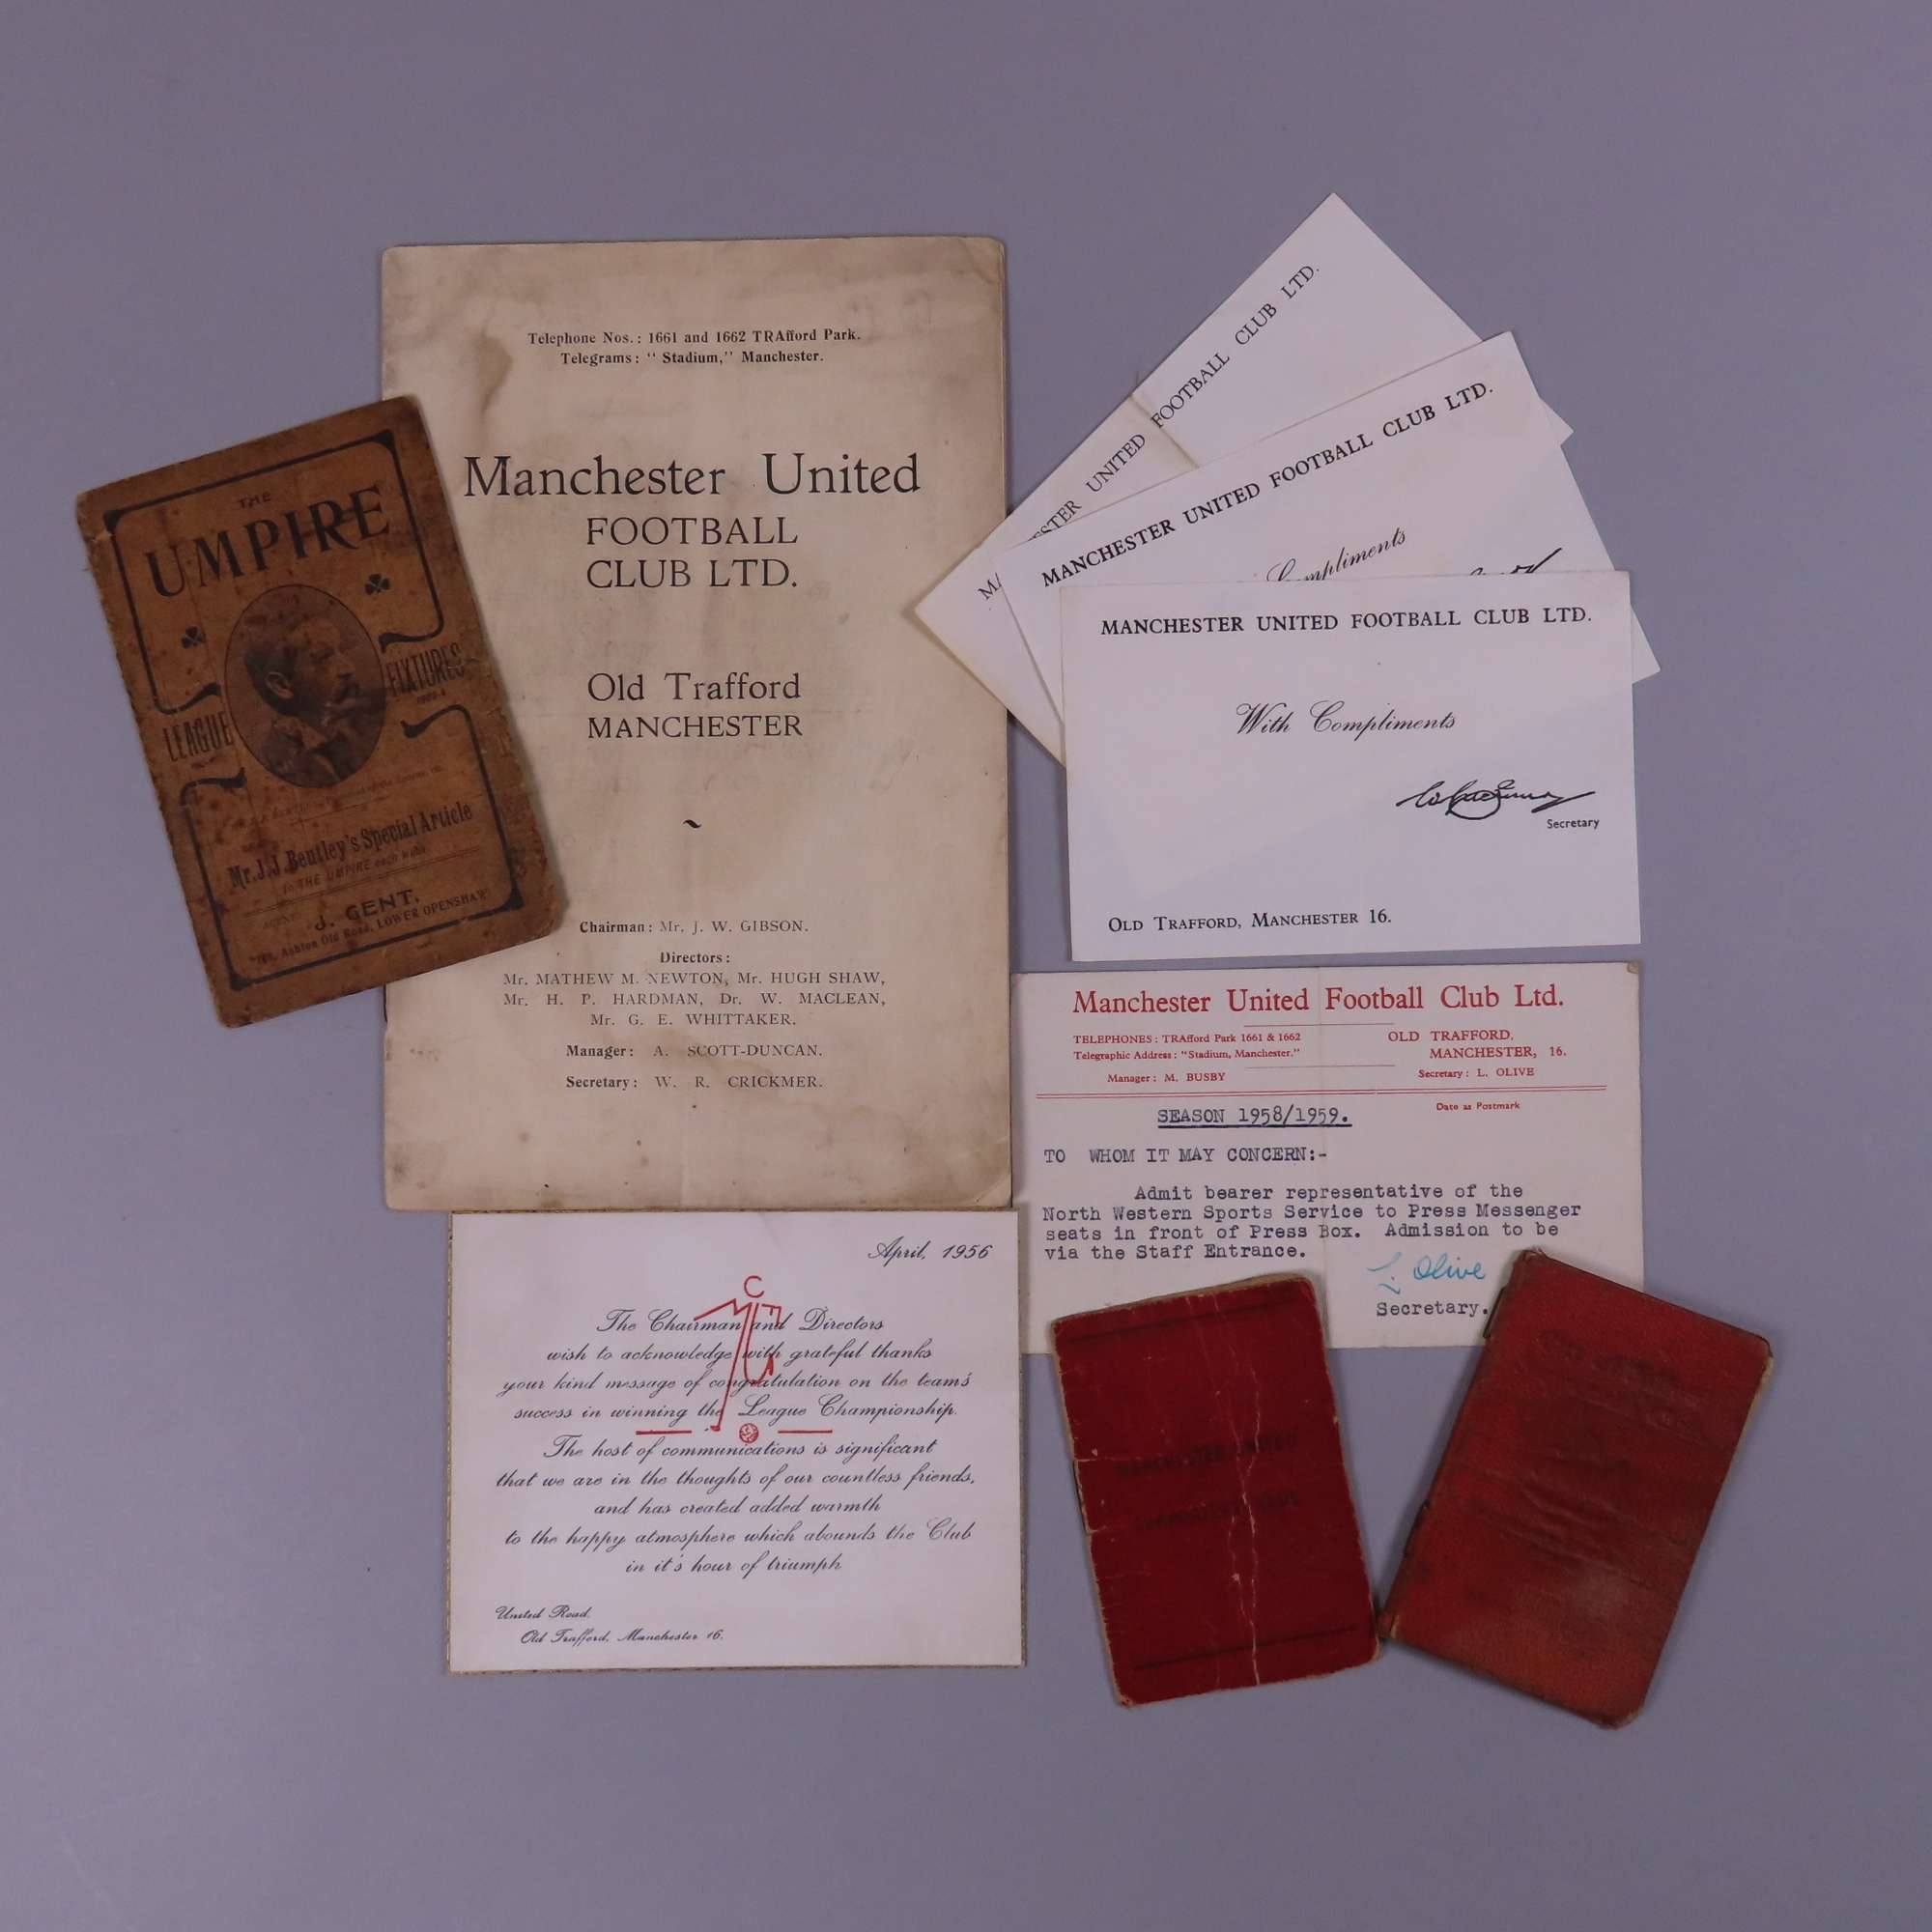 THE
UMPIRE
LEAGUE
FIXTURES
Mr. J. J. Bentley's Special Article
in THE UMPIRE each week
AGENT
J. GENT,
Ashton Old Road, LOWER OPENSHAW
Telephone Nos.: 1661 and 1662 TRAfford Park.
Telegrams: "Stadium," Manchester.
Manchester United
FOOTBALL
CLUB LTD.
Old Trafford
MANCHESTER
Chairman: Mr. J. W. GIBSON.
Directors:
Mr. MATHEW M. NEWTON, Mr. HUGH SHAW,
Mr. H. P. HARDMAN, Dr. W. MACLEAN,
Mr. G. E. WHITTAKER.
Manager: A. SCOTT-DUNCAN.
Secretary: W. R. CRICKMER.
MA
STER UNITED FOOTBALL CLUB LTD.
MANCHESTER UNITED FOOTBALL CLUB LTD.
Compliments
MANCHESTER UNITED FOOTBALL CLUB LTD.
With Compliments
Secretary
OLD TRAFFORD, MANCHESTER 16.
Manchester United Football Club Ltd.
TELEPHONES: TRAfford Park 1661 & 1662
Telegraphic Address: "Stadium, Manchester."
Manager: M. BUSBY
OLD TRAFFORD,
MANCHESTER, 16.
Secretary: L. OLIVE
Date as Postmark
SEASON 1958/1959.
TO WHOM IT MAY CONCERN:-
Admit bearer representative of the
North Western Sports Service to Press Messenger
seats in front of Press Box. Admission to be
via the Staff Entrance.
L. Olive
Secretary.
April, 1956
MUFC
The Chairman and Directors
wish to acknowledge with grateful thanks
your kind message of congratulation on the team's
success in winning the League Championship.
The host of communications is significant
that we are in the thoughts of our countless friends,
and has created added warmth
to the happy atmosphere which abounds the Club
in it's hour of triumph
United Road,
Old Trafford, Manchester 16.
MANCHESTER UNITED